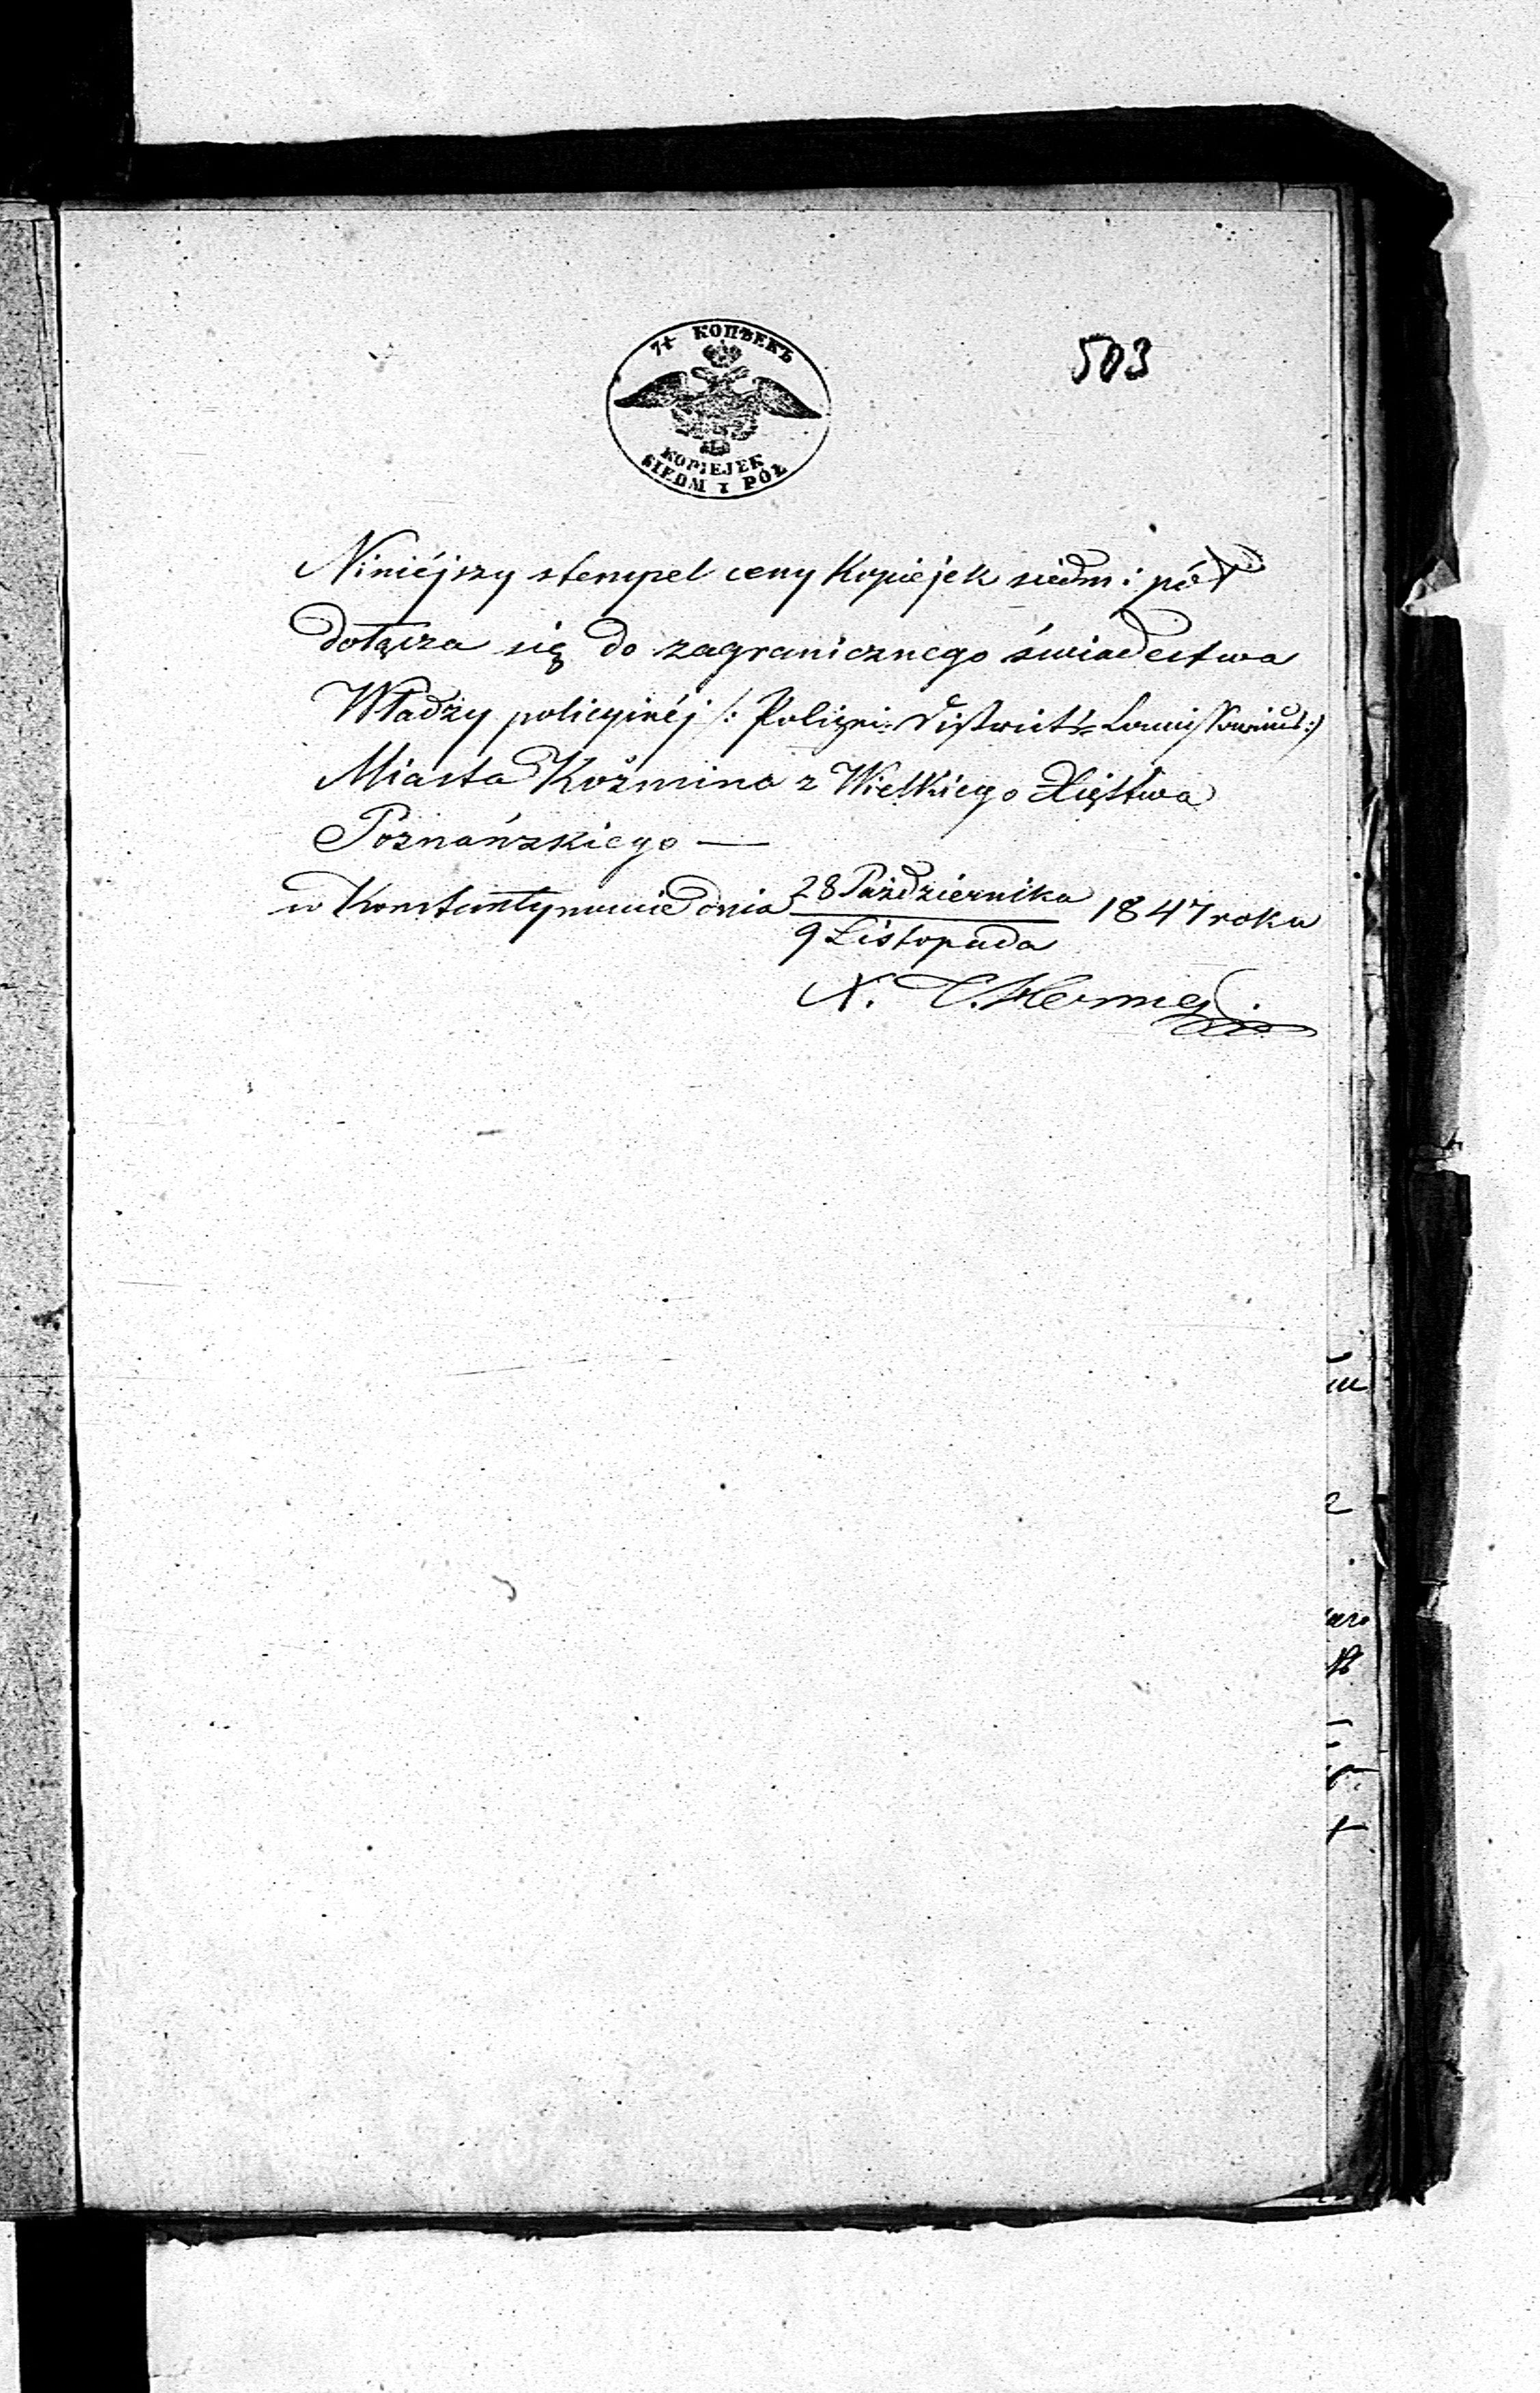 7½ КОПѢЕКЪ
KOPIEJEK
SIEDM I PÓŁ
503
Niniéjszy stempel ceny Kopiejek siedm i pół
dołącza się do zagranicznego świadectwa
Władzy policyjnéj /: Polizei-Districts-Commissariat :/
Miasta Koźmina z Wielkiego Xięstwa
Poznańskiego —
w Konstantynowie dnia 28 Października 1847 roku
9 Listopada
X.